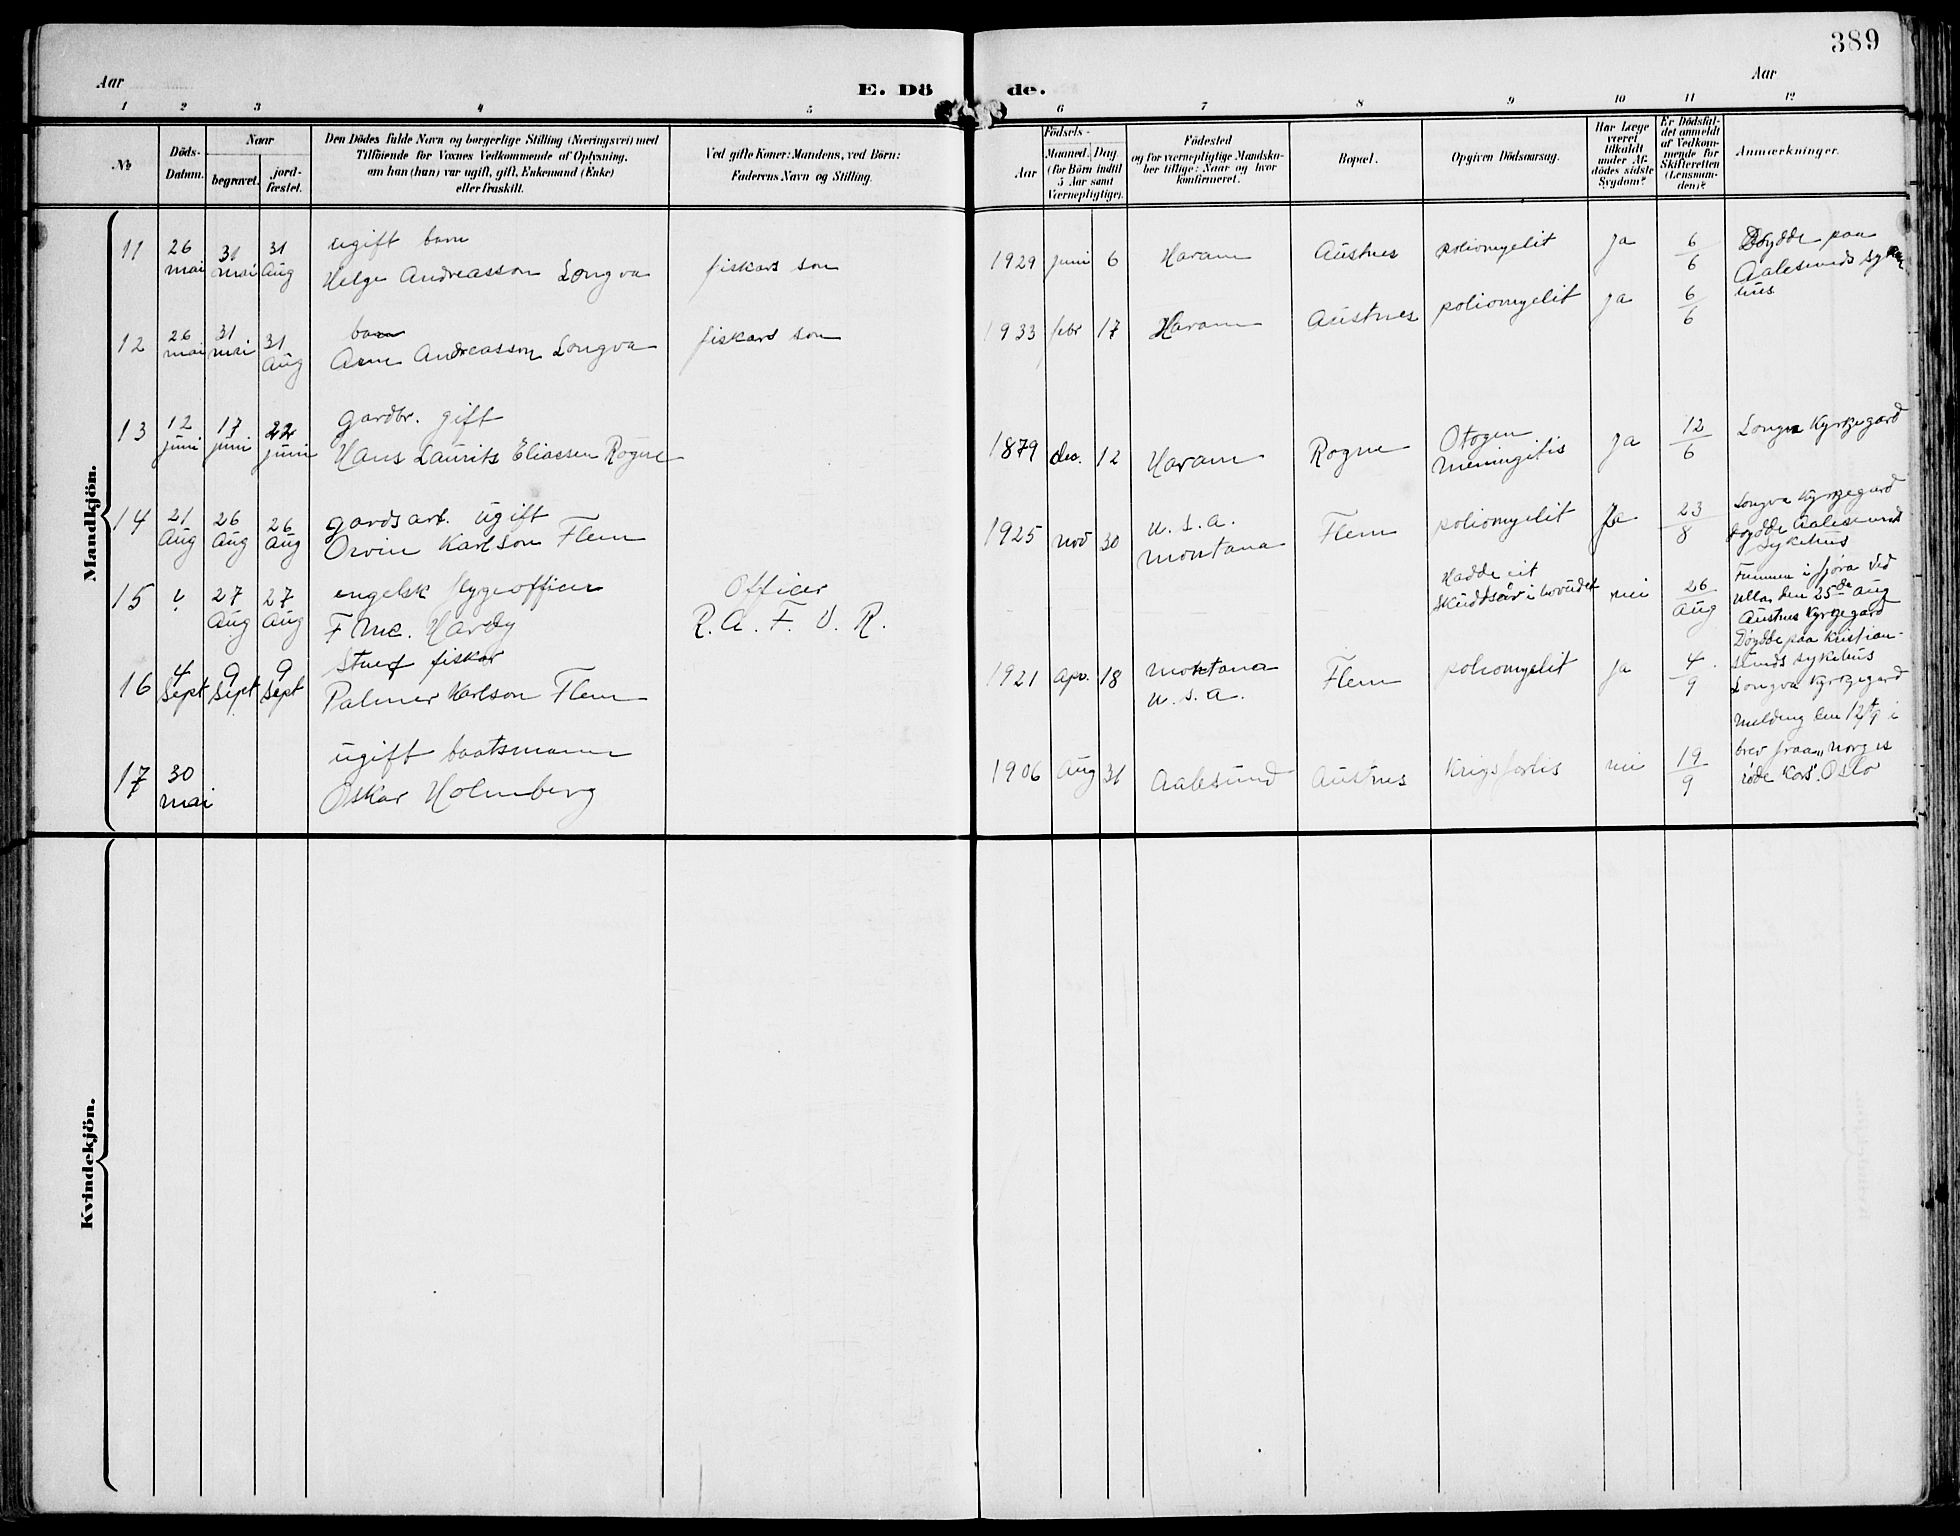 389
Aar
E. Dö
de.
Aar
1 2 3 4 5 6 7 8 9 10 11 12
№
Döds-
Datum.
Naar
begravet.
jord-
fæstet.
Den Dödes fulde Navn og borgerlige Stilling (Næringsvei) med
Tilföiende for Voxnes Vedkommende af Oplysning,
om han (hun) var ugift, gift, Enkemand (Enke)
eller fraskilt.
Ved gifte Koner: Mandens, ved Börn:
Faderens Navn og Stilling.
Födsels-
Aar
Maaned.
Dag
(for Börn indtil
5 Aar samt
Værnepligtige).
Födested
og for værnepligtige Mandska-
ber tillige: Naar og hvor
konfirmeret.
Bopæl.
Opgiven Dödsaarsag.
Har Læge
været
tilkaldt
under Af-
dödes sidste
Sygdom?
Er Dödsfal-
det anmeldt
af Vedkom-
mende for
Skifteretten
(Lensman-
den)?
Anmærkninger.
Mandkjön.
11
26
mai
31
mai
31
Aug
ugift barn
Helge Andreasson Longva
fiskars son
1929 juni 6
Haram
Austnes
poliomyelit
ja
6
6
Døydde paa
Aalesunds syke
hus
12
26
mai
31
mai
31
Aug
barn
Arne Andreasson Longva
fiskars son
1933 febr 17
Haram
Austnes
poliomyelit
ja
6
6
13
12
juni
17
juni
22
juni
gardbr. gift
Hans Laurits Eliassen Rogne
1879 des. 12
Haram
Rogne
Otogen
meningitis
ja
12
6
Longva Kyrkjegard
14
21
Aug
26
Aug
26
Aug
gardsarb. ugift
Orvin Karlson Flem
1925 nov 30
U.S.A.
montana
Flem
poliomyelit
Ja
23
8
Longva Kyrkjegard
døydde Aalesund
sykehus
15
?
27
Aug
27
Aug
engelsk flygeofficer
F Mc. Hardy
Officer
R. A. F. V. R.
Hadde eit
skuddsår i hovudet
nei
26
Aug
Funnen i fjøra ved
Ulla den 25de Aug
Austnes Kyrkjegard
16
4
Sept
9
Sept
9
Sept
fiskar
Palmer Karlson Flem
1921 apr. 18
montana
U.S.A.
Flem
poliomyelit
ja
4
9
Døydde paa Kristian-
sunds sykehus
Longva Kyrkjegard
17
30
mai
ugift baatsmann
Oskar Holmberg
1906 Aug 31
Aalesund
Austnes
Krigsforlis
nei
19
9
Melding den 12/9 i
brev fraa „Norg is
røde Kors". Oslo
Kvindekjön.